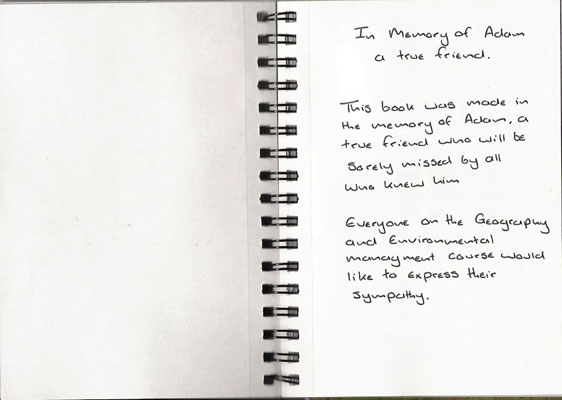 In Memory of Adam
a true friend.
This book was made in
the memory of Adam, a
true friend who will be
sorely missed by all
who knew him
Everyone on the Geography
and Environmental
managment course would
like to express their
sympathy.